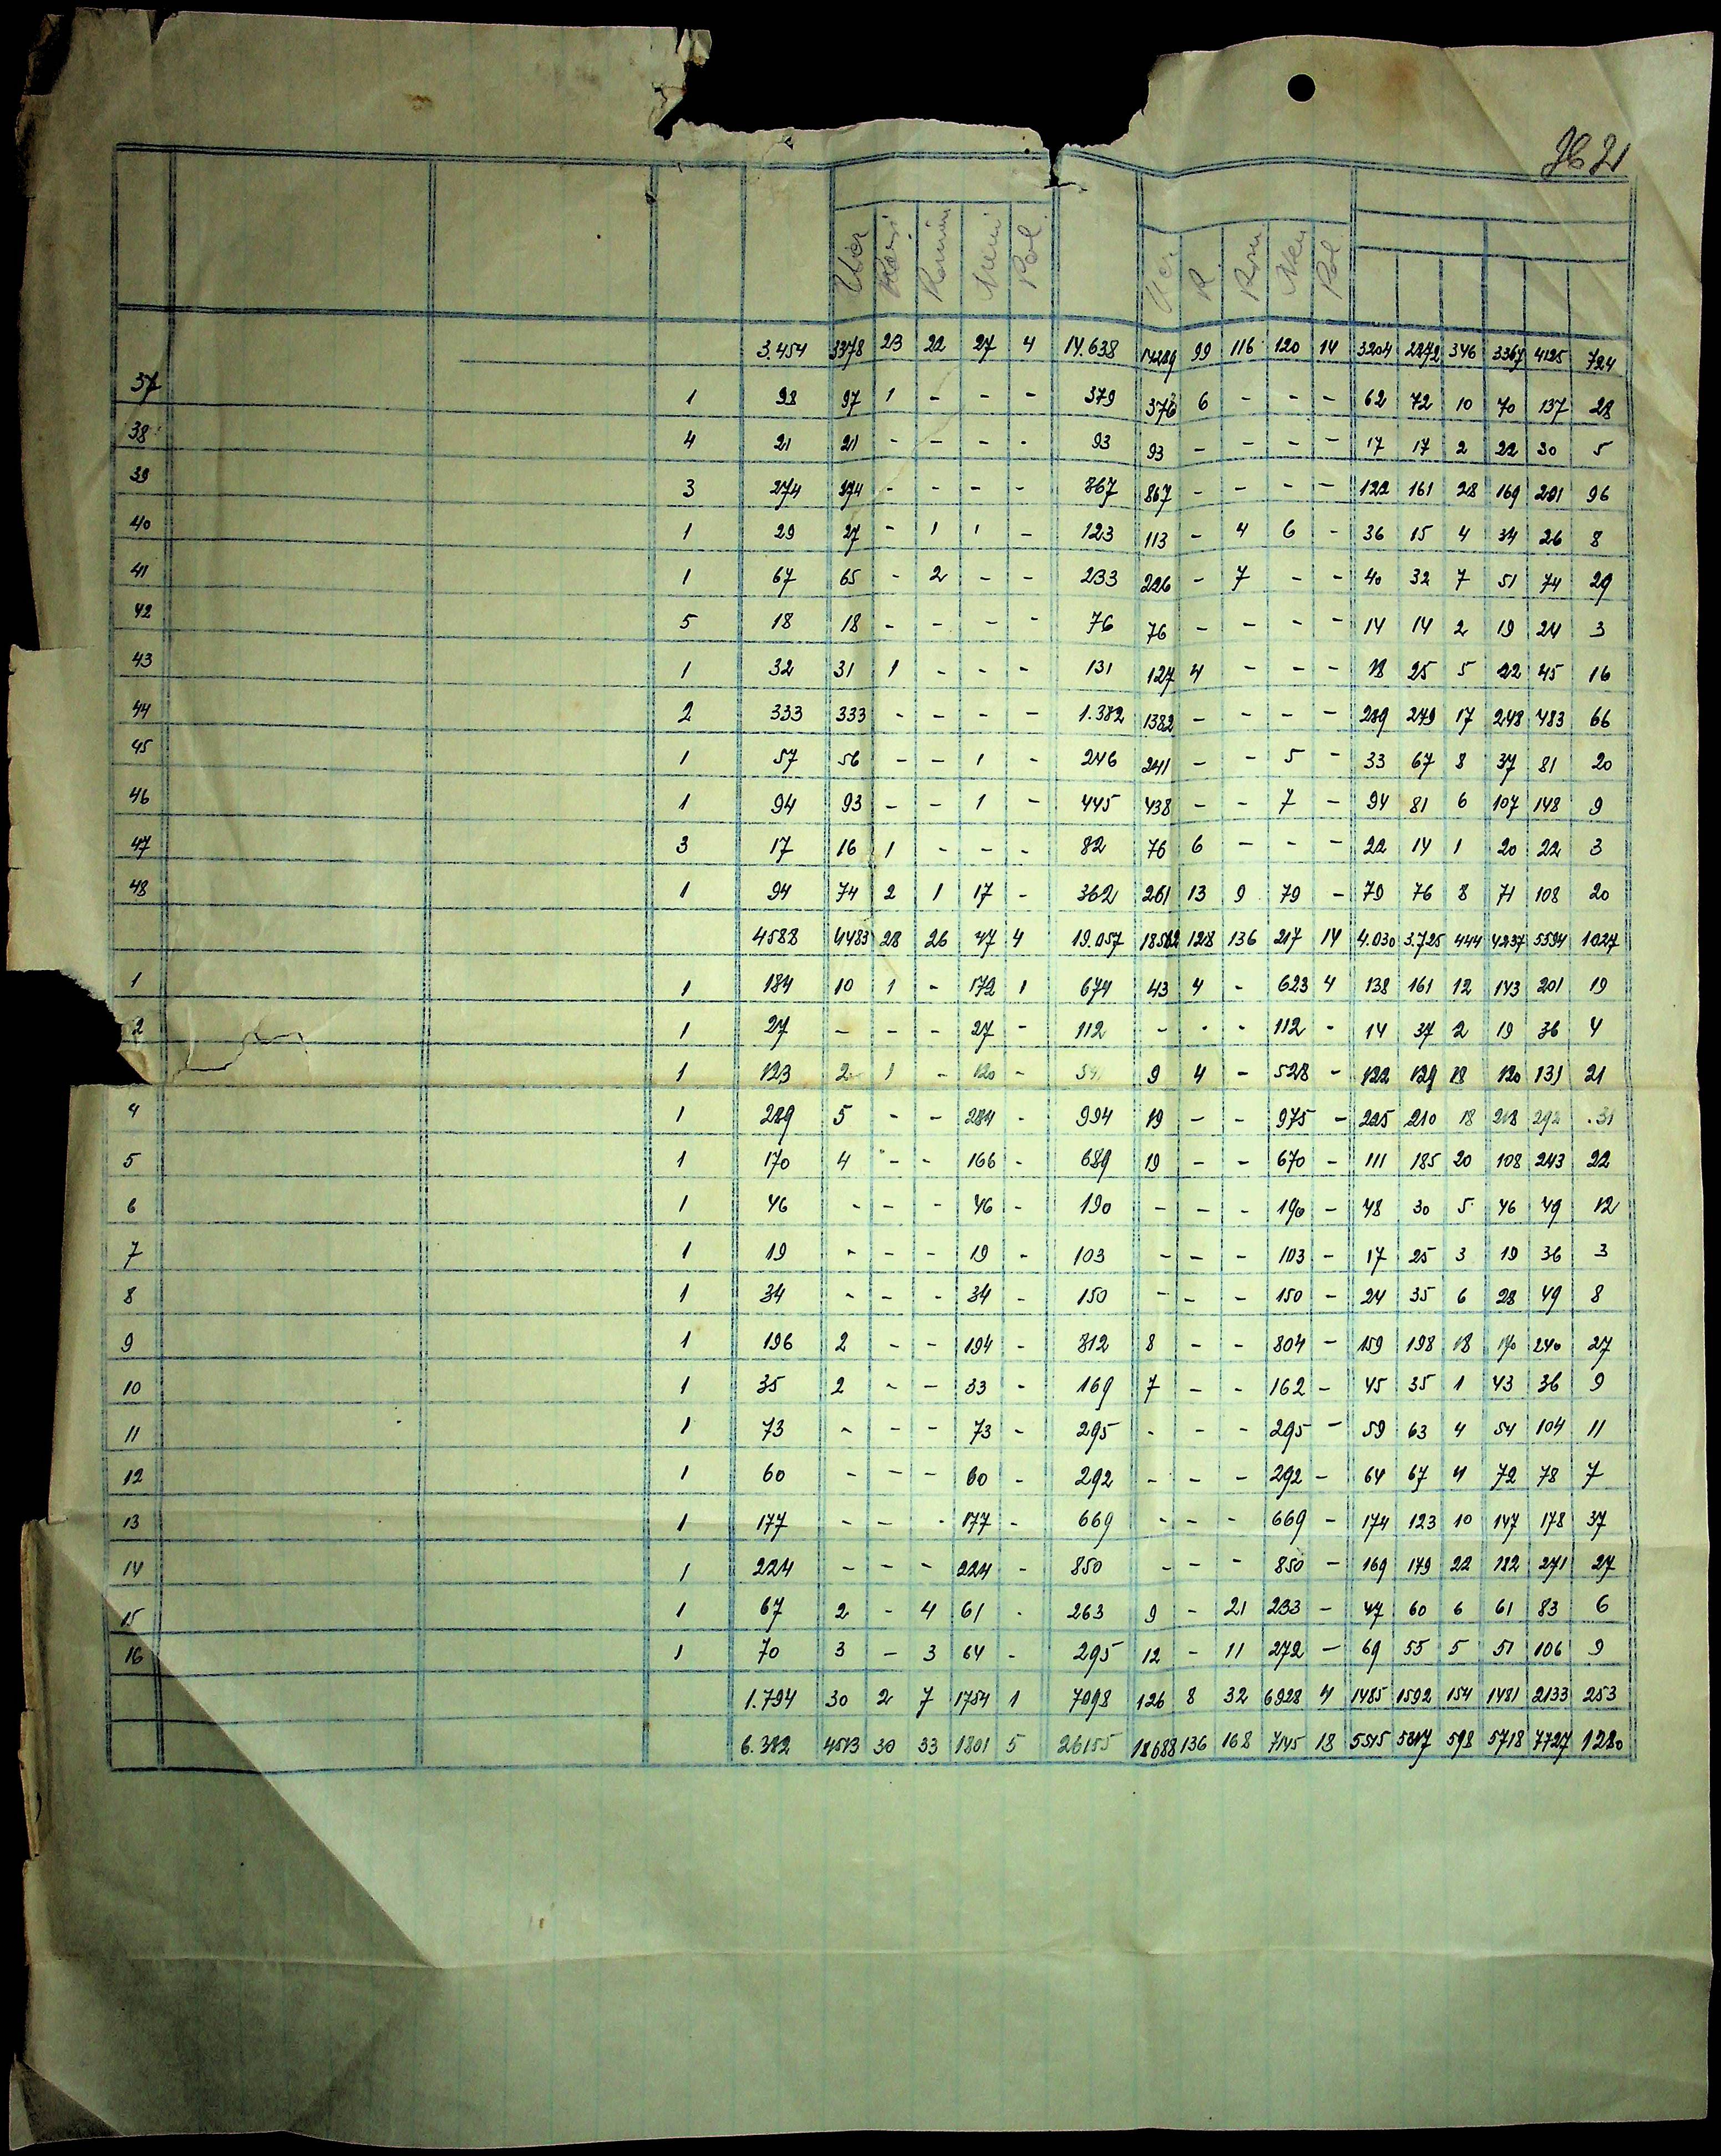 Ucr Rusi Român Nemi Pol. Ucr. R. Rom. Nem Pol.
3.454 3378 23 22 27 4 14.638 14289 99 116 120 14 3204 2872 346 3367 4125 724
37 1 98 97 1 - - - 379 373 6 - - - 62 72 10 70 137 28
38 4 21 21 - - - - 93 93 - - - - 17 17 2 22 30 5
39 3 274 274 - - - - 867 867 - - - - 122 161 28 169 291 96
40 1 29 27 - 1 1 - 123 113 - 4 6 - 36 15 4 34 26 8
41 1 67 65 - 2 - - 233 226 - 7 - - 40 32 7 51 74 29
42 5 18 18 - - - - 76 76 - - - - 14 14 2 19 24 3
43 1 32 31 1 - - - 131 127 4 - - - 18 25 5 22 45 16
44 2 333 333 - - - - 1.382 1382 - - - - 289 279 17 248 483 66
45 1 57 56 - - 1 - 246 241 - - 5 - 33 67 8 37 81 20
46 1 94 93 - - 1 - 445 438 - - 7 - 94 81 6 107 148 9
47 3 17 16 1 - - - 82 76 6 - - - 22 14 1 20 22 3
48 1 94 74 2 1 17 - 362 261 13 9 79 - 79 76 8 71 108 20
4588 4483 28 26 47 4 19.057 18562 128 136 217 14 4.030 3.725 444 4237 5594 1027
1 1 184 10 1 - 172 1 674 43 4 - 623 4 138 161 12 143 201 19
2 1 27 - - - 27 - 112 - - - 112 - 14 37 2 19 36 4
1 123 2 1 - 120 - 9 4 - 528 - 122 129 18 120 131 21
4 1 289 5 - - 284 - 994 19 - - 975 - 225 210 18 218 292 31
5 1 170 4 - - 166 - 689 19 - - 670 - 111 185 20 108 243 22
6 1 46 - - - 46 - 190 - - - 190 - 48 30 5 46 49 12
7 1 19 - - - 19 - 103 - - - 103 - 17 25 3 19 36 3
8 1 34 - - - 34 - 150 - - - 150 - 24 35 6 28 49 8
9 1 196 2 - - 194 - 812 8 - - 804 - 159 198 18 170 240 27
10 1 35 2 - - 33 - 169 7 - - 162 - 45 35 1 43 36 9
11 1 73 - - - 73 - 295 - - - 295 - 59 63 4 54 104 11
12 1 60 - - - 60 - 292 - - - 292 - 64 67 4 72 78 7
13 1 177 - - - 177 - 669 - - - 669 - 174 123 10 147 178 37
14 1 224 - - - 224 - 850 - - - 850 - 169 179 22 182 271 27
15 1 67 2 - 4 61 - 263 9 - 21 233 - 47 60 6 61 83 6
16 1 70 3 - 3 64 - 295 12 - 11 272 - 69 55 5 51 106 9
1.794 30 2 7 1754 1 7098 126 8 32 6928 4 1485 1592 154 1481 2133 253
6.382 4513 30 33 1801 5 26155 18688 136 168 7145 18 5515 5317 598 5718 7727 1280